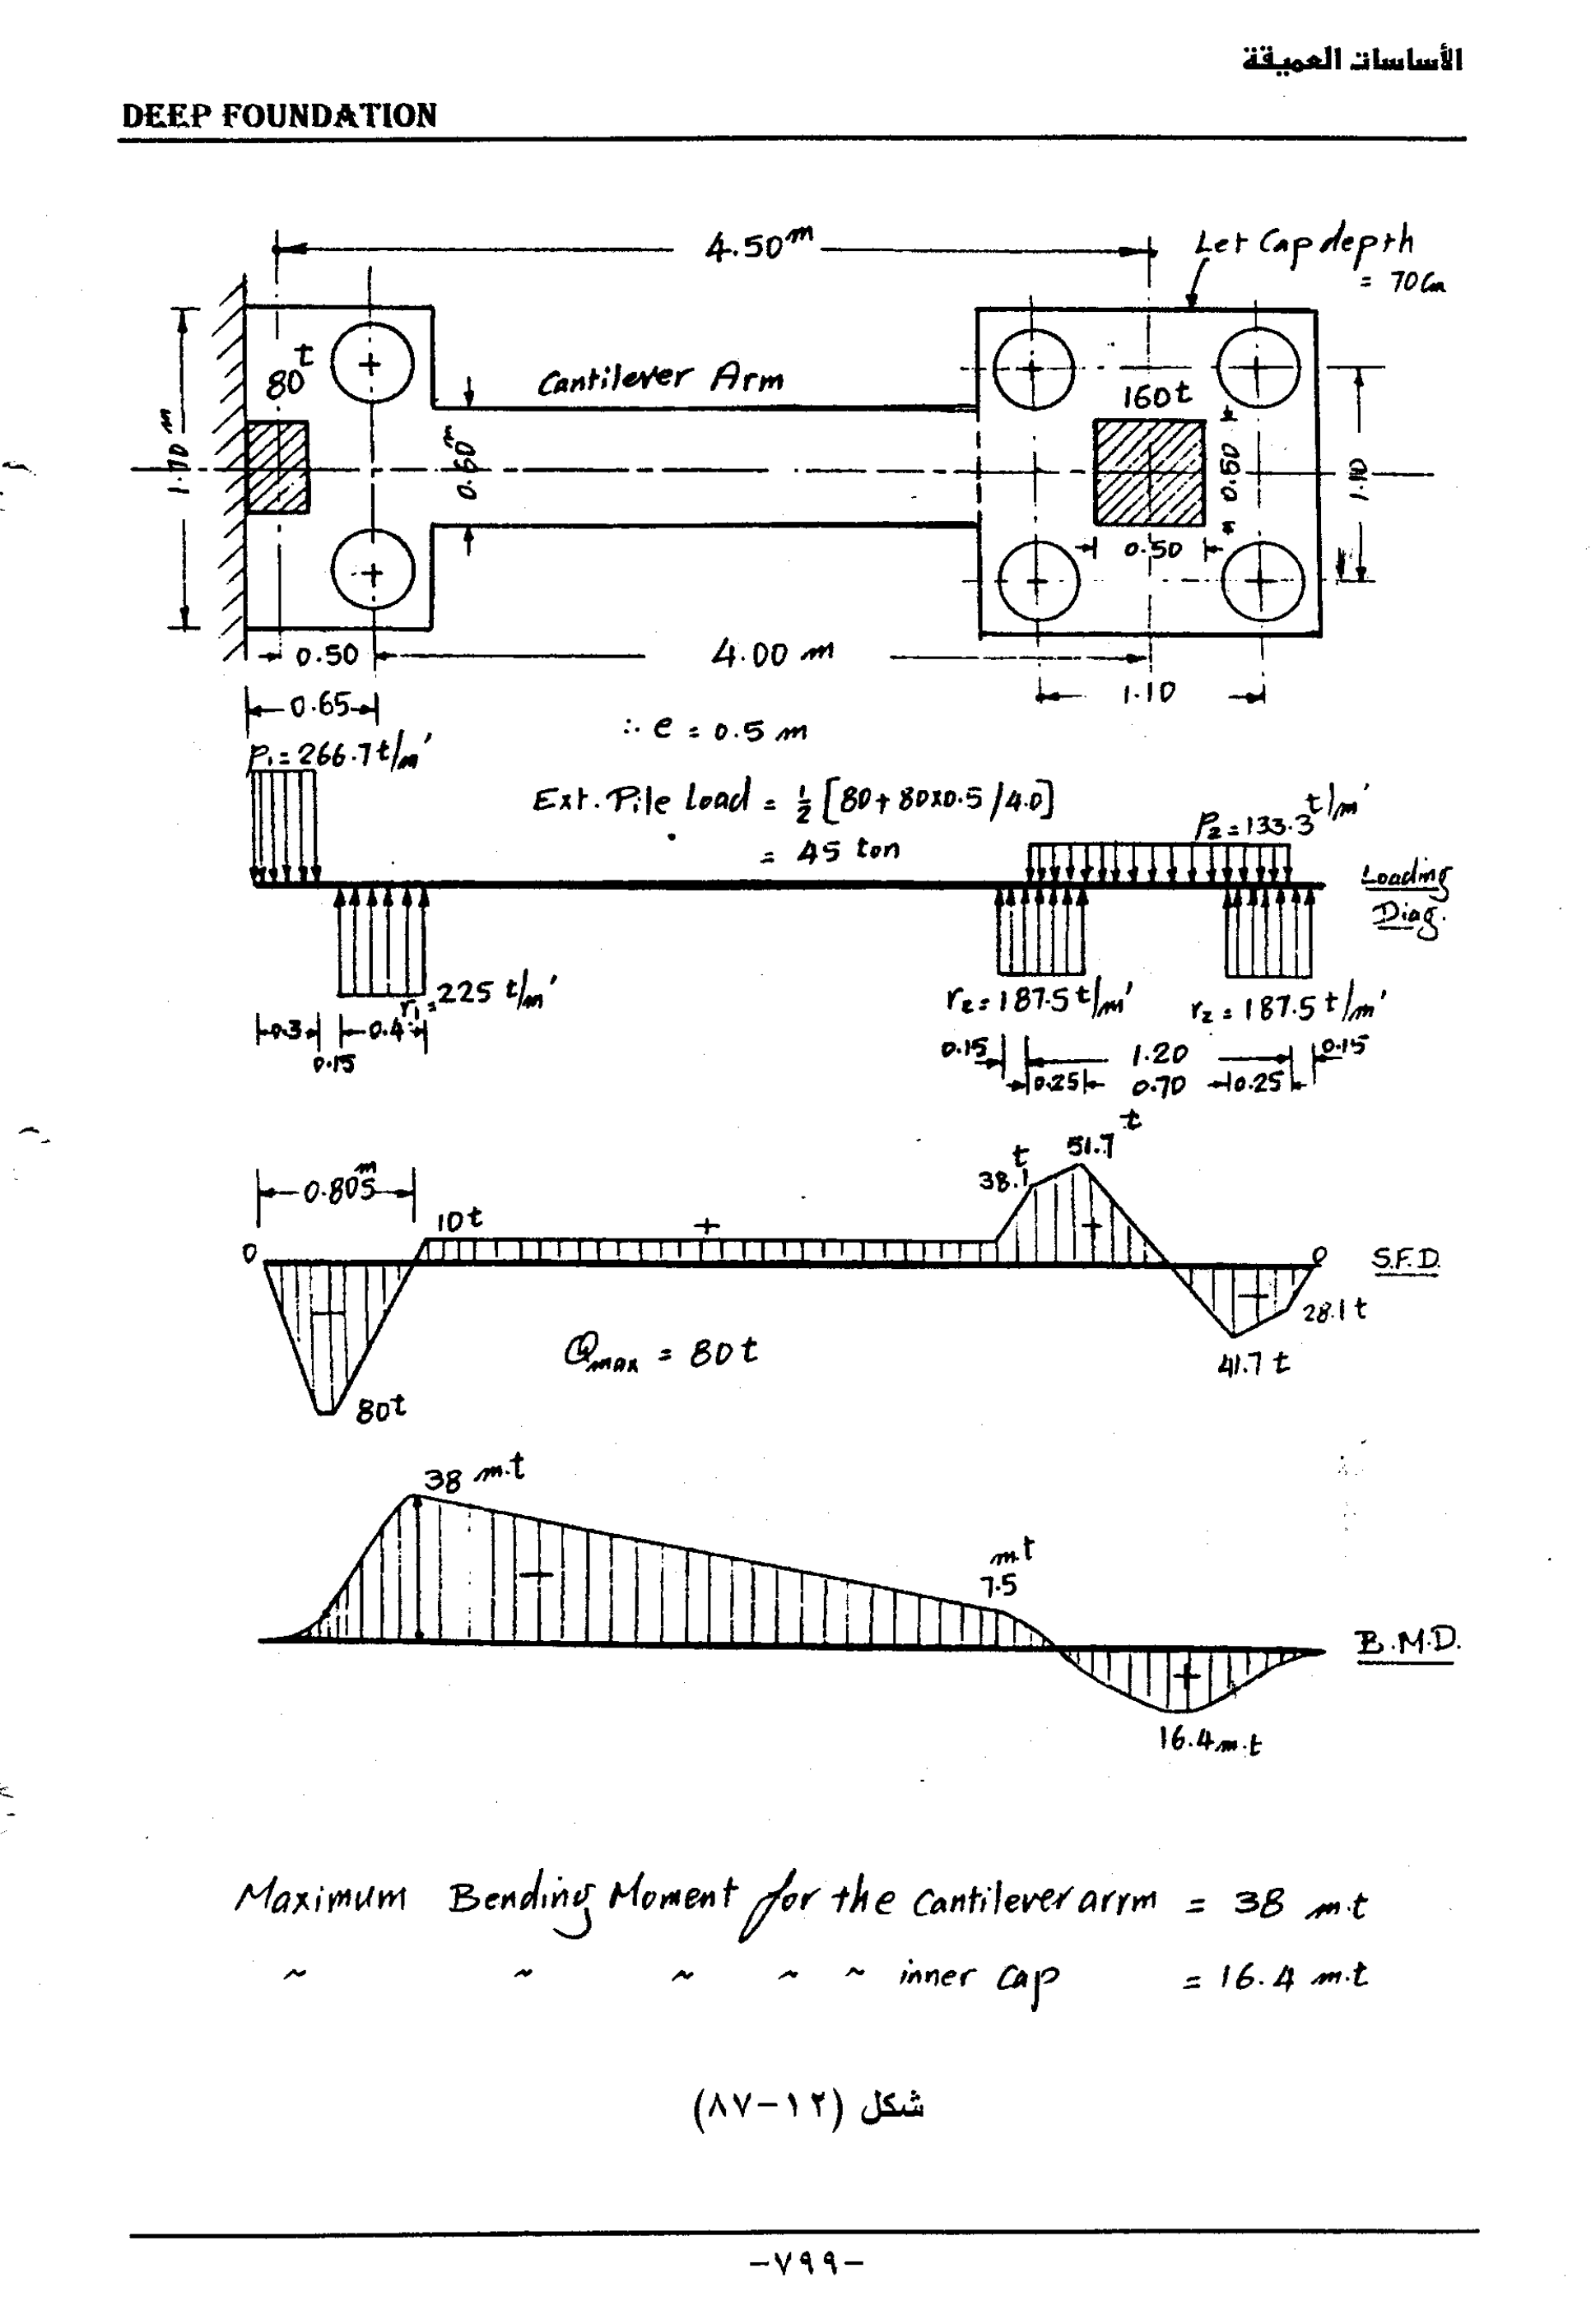 الأساسات العميقة
DEEP FOUNDATION
4.50 m
Let Cap depth
= 70 Cm
80 t
Cantilever Arm
160 t
1.70 m
0.60 m
0.50
1.10
0.50
0.50
4.00 m
0.65
1.10
∴ e = 0.5 m
P₁ = 266.7 t/m'
Ext. Pile Load = ½ [80 + 80x0.5 / 4.0]
= 45 ton
P₂ = 133.3 t/m'
Loading
Diag.
r₁ = 225 t/m'
r₂ = 187.5 t/m'
r₂ = 187.5 t/m'
0.3
0.4
0.15
0.15
1.20
0.15
0.25
0.70
0.25
51.7 t
38.1 t
0.805 m
10 t
+
0
+
0
S.F.D.
28.1 t
Qmax = 80 t
41.7 t
80 t
38 m.t
m.t
7.5
B.M.D.
16.4 m.t
Maximum Bending Moment for the Cantilever arrm = 38 m.t
~ ~ ~ ~ ~ inner Cap = 16.4 m.t
شكل (١٢-٨٧)
-٧٩٩-